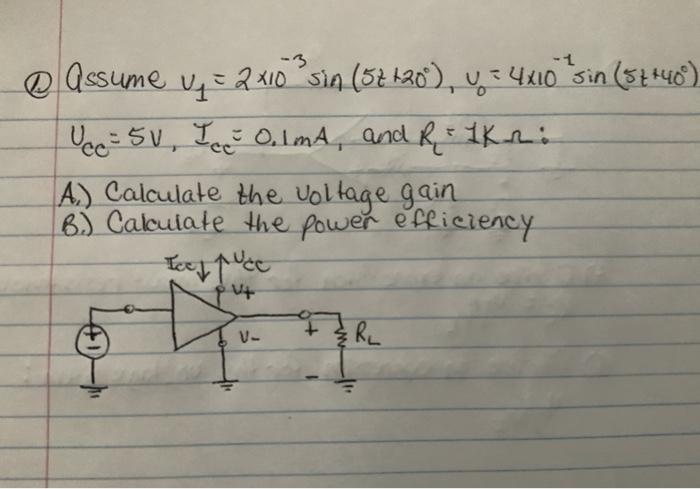 ① Assume v₁ = 2x10⁻³ sin (5t+20°), v₀ = 4x10⁻¹ sin (5t+40°)
Ucc = 5V, Icc = 0.1mA, and RL = 1KΩ:
A.) Calculate the voltage gain
B.) Calculate the power efficiency
Icc↓ ↑Ucc
V+
V-
+ RL
-